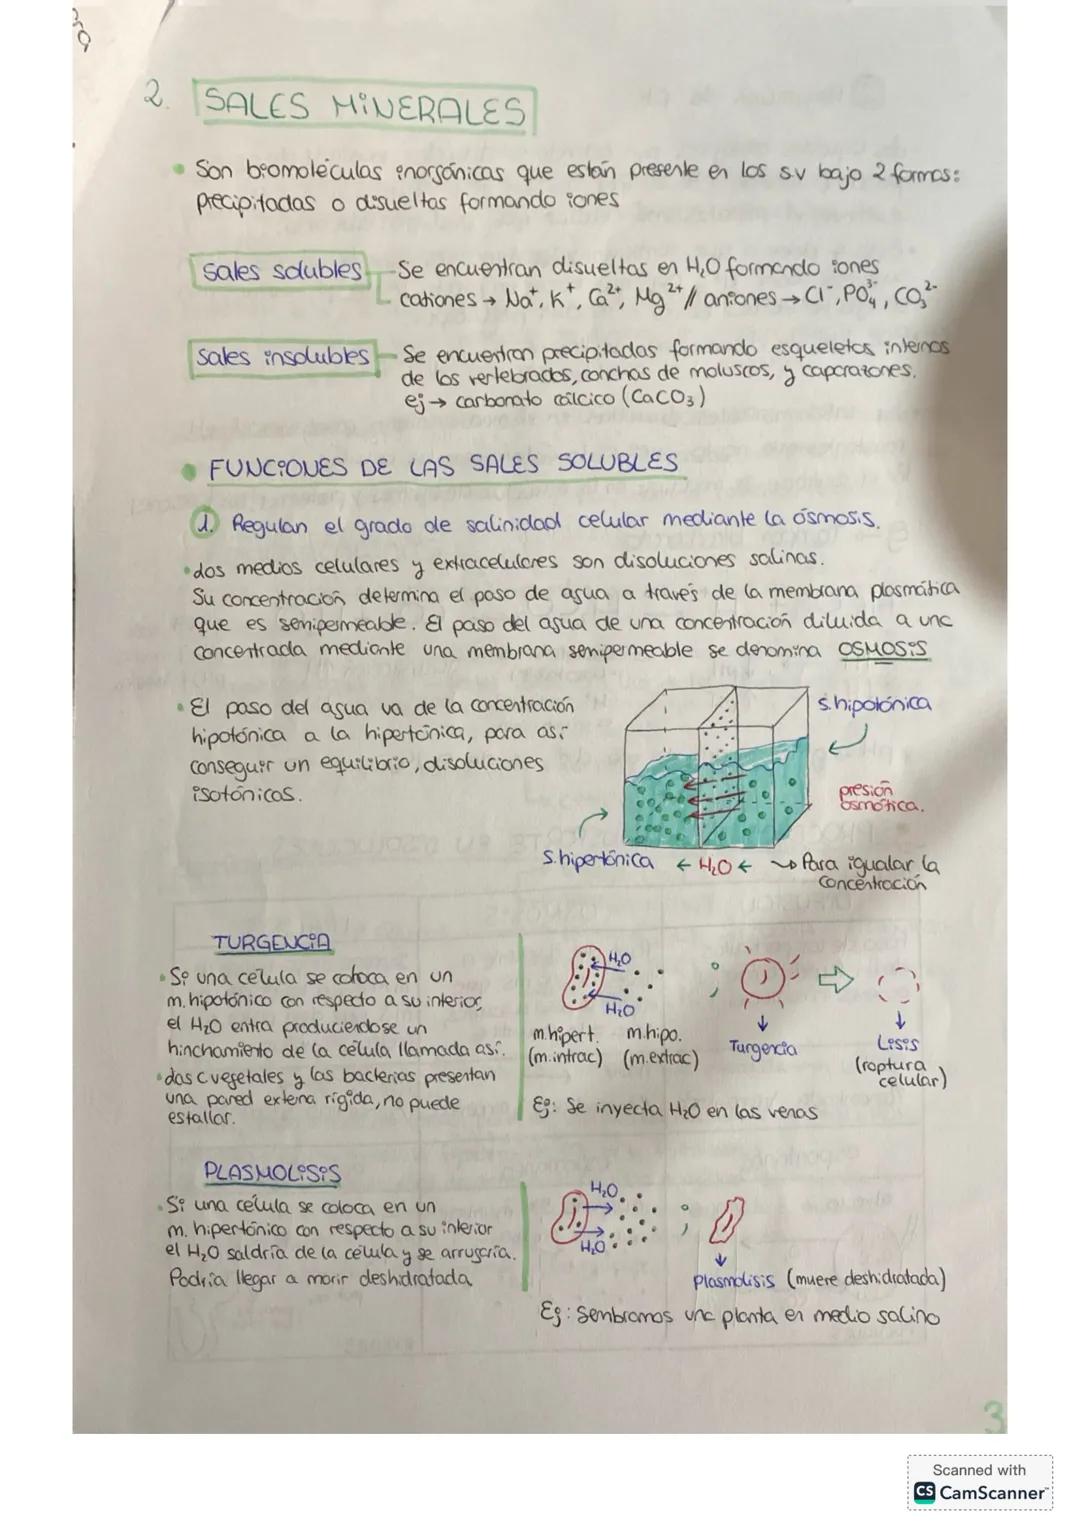 2. SALES MINERALES
• Son biomoléculas inorgánicas que están presente en los s.v bajo 2 formas:
precipitadas o disueltas formando iones
Sales solubles Se encuentran disueltas en H₂O formando iones
cationes → Na⁺, K⁺, Ca²⁺, Mg²⁺ // aniones → Cl⁻, PO₄³⁻, CO₃²⁻
Sales insolubles Se encuentran precipitadas formando esqueletos internos
de los vertebrados, conchas de moluscos, y caparazones.
ej → carbonato cálcico (CaCO₃)
• FUNCIONES DE LAS SALES SOLUBLES
1. Regulan el grado de salinidad celular mediante la ósmosis.
• Los medios celulares y extracelulares son disoluciones salinas.
Su concentración determina el paso de agua a través de la membrana plasmática
que es semipermeable. El paso del agua de una concentración diluida a una
concentrada mediante una membrana semipermeable se denomina OSMOSIS
• El paso del agua va de la concentración
hipotónica a la hipertónica, para así
conseguir un equilibrio, disoluciones
isotónicas.
s.hipotónica
presión
osmótica.
S.hipertónica ← H₂O ← → Para igualar la
concentración
TURGENCIA
• Si una célula se coloca en un
m. hipotónico con respecto a su interior,
el H₂O entra produciendose un
hinchamiento de la célula llamada así.
• Las c vegetales y las bacterias presentan
una pared externa rígida, no puede
estallar.
H₂O
H₂O
m.hipert. m.hipo.
(m.intrac) (m.extrac)
Turgencia
Lisis
(ruptura
celular)
Ej: Se inyecta H₂O en las venas
PLASMOLISIS
• Si una célula se coloca en un
m. hipertónico con respecto a su interior
el H₂O saldría de la célula y se arrugaría.
Podría llegar a morir deshidratada
H₂O
H₂O
plasmolisis (muere deshidratada)
Ej: Sembramos una planta en medio salino
3
Scanned with
CS CamScanner